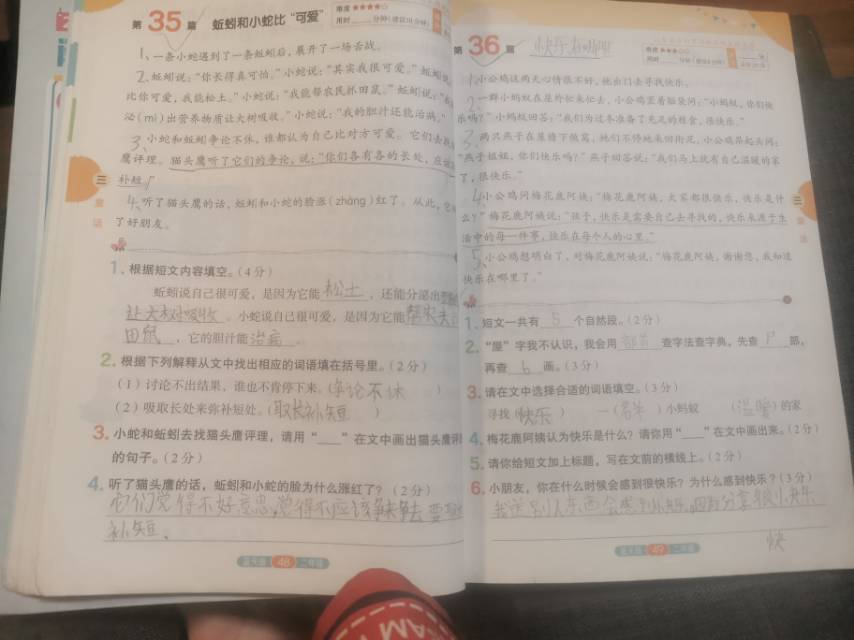 第35篇 蚯蚓和小蛇比“可爱”
难度★★★★☆
用时 分钟(建议10分钟)
1、一条小蛇遇到了一条蚯蚓后，展开了一场舌战。
2、蚯蚓说：“你长得真可怕。”小蛇说：“其实我很可爱。”蚯蚓
比你可爱，我能松土。”小蛇说：“我能帮农民抓田鼠。”蚯蚓说：“我
泌(mì)出营养物质让大树吸收。”小蛇说：“我的胆汁还能治病。”
3、小蛇和蚯蚓争论不休，谁都认为自己比对方可爱。它们去找
鹰评理。猫头鹰听了它们的争论，说：“你们各有各的长处，应该
补短。”
4、听了猫头鹰的话，蚯蚓和小蛇的脸涨(zhàng)红了。从此，它
了好朋友。
三
童话
1. 根据短文内容填空。(4分)
蚯蚓说自己很可爱，是因为它能松土，还能分泌出
让大树吸收。小蛇说自己很可爱，是因为它能帮农夫
田鼠，它的胆汁能治病。
2. 根据下列解释从文中找出相应的词语填在括号里。(2分)
(1)讨论不出结果，谁也不肯停下来。(争论不休)
(2)吸取长处来弥补短处。(取长补短)
3. 小蛇和蚯蚓去找猫头鹰评理，请用“＿＿”在文中画出猫头鹰评
的句子。(2分)
4. 听了猫头鹰的话，蚯蚓和小蛇的脸为什么涨红了？(2分)
它们觉得不好意思，觉得不应该争
补短。
蓝天版 48 二年级
第36篇 快乐在哪里
难度★★★☆☆
1、小公鸡这两天心情很不好，他出门去寻找快乐。
2、一群小蚂蚁在屋外忙来忙去，小公鸡歪着脑袋问：“小蚂蚁，你们快
乐吗？”小蚂蚁回答：“我们为过冬准备了充足的粮食，很快乐。”
3、两只燕子在屋檐下做窝，她们不停地来回衔泥，小公鸡昂起头问：
“燕子姐姐，你们快乐吗？”燕子回答说：“我们马上就有自己温暖的家
了，很快乐。”
4、小公鸡问梅花鹿阿姨：“梅花鹿阿姨，大家都很快乐，快乐是什
么？”梅花鹿阿姨说：“孩子，快乐是需要自己去寻找的，快乐来源于生
活中的每一件事，快乐在每个人的心里。”
5、小公鸡想明白了，对梅花鹿阿姨说：“梅花鹿阿姨，谢谢您，我知道
快乐在哪里了。”
三
童话
1. 短文一共有5个自然段。(2分)
2. “屋”字我不认识，我会用部首查字法查字典，先查尸部，
再查6画。(3分)
3. 请在文中选择合适的词语填空。(3分)
寻找(快乐) 一(群)小蚂蚁 (温暖)的家
4. 梅花鹿阿姨认为快乐是什么？请你用“＿＿”在文中画出来。(2分)
5. 请你给短文加上标题，写在文前的横线上。(2分)
6. 小朋友，你在什么时候会感到很快乐？为什么感到快乐？(3分)
我送别人东西会感到快乐，因为分享很快乐
快
蓝天版 49 二年级